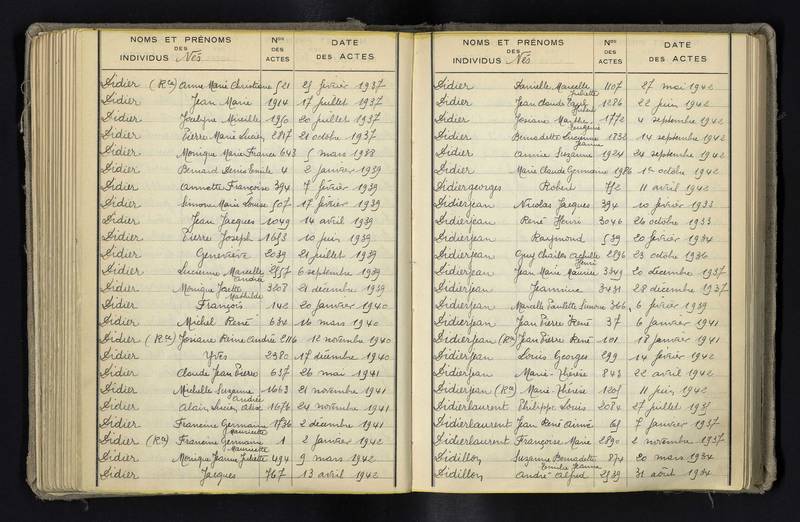 NOMS ET PRÉNOMS
DES
INDIVIDUS Nés
Nos
DES
ACTES
DATE
DES ACTES
Didier (Rcé) Anne Marie Christiane 521 25 février 1937
Didier Jean Marie 1914 17 juillet 1937
Didier Jocelyne Mireille 1950 20 juillet 1937
Didier Pierre Marie Lucien 2817 21 octobre 1937
Didier Monique Marie France 643 5 mars 1938
Didier Bernard Denis Emile 4 2 janvier 1939
Didier Annette Françoise 394 7 février 1939
Didier Simone Marie Louise 507 17 février 1939
Didier Jean Jacques 1049 14 avril 1939
Didier Pierre Joseph 1653 10 juin 1939
Didier Geneviève 2039 21 juillet 1939
Didier Lucienne Marcelle 2557 6 septembre 1939
Andrée
Didier Monique Josette 3208 21 décembre 1939
Mathilde
Didier François 142 20 janvier 1940
Didier Michel René 634 16 mars 1940
Didier (Rcé) Josiane Reine Andrée 2116 12 novembre 1940
Didier Yves 2380 17 décembre 1940
Didier Claude Jean Pierre 637 26 mai 1941
Didier Michelle Suzanne 1663 21 novembre 1941
Andrée
Didier Alain Lucien 1676 24 novembre 1941
Didier Francine Germaine 1736 2 décembre 1941
Mauricette
Didier (Rcé) Francine Germaine 1 2 janvier 1942
Mauricette
Didier Monique Jeanne Juliette 494 9 mars 1942
Didier Jacques 767 13 avril 1942
NOMS ET PRÉNOMS
DES
INDIVIDUS Nés
Nos
DES
ACTES
DATE
DES ACTES
Didier Danielle Marcelle 1107 27 mai 1942
Juliette
Didier Jean Claude 1286 22 juin 1942
Didier Josiane Marthe 1772 4 septembre 1942
Eugénie
Didier Bernadette Lucienne 1832 14 septembre 1942
Jeanne
Didier Annie Suzanne 1924 24 septembre 1942
Didier Marie Claude Germaine 1986 1er octobre 1942
Didiergeorges Robert 752 11 avril 1942
Didierjean Nicolas Jacques 394 10 février 1933
Didierjean René Henri 3046 26 octobre 1933
Didierjean Raymond 539 20 février 1934
Didierjean Guy Charles Achille 2896 23 octobre 1936
Henri
Didierjean Jean Marie Maurice 3349 20 décembre 1937
Didierjean Jeannine 3431 28 décembre 1937
Didierjean Marcelle Paulette Simone 366 6 février 1939
Didierjean Jean Pierre René 37 6 janvier 1941
Didierjean (Rcé) Jean Pierre René 101 18 janvier 1941
Didierjean Louis Georges 299 14 février 1942
Didierjean Marie-Thérèse 843 22 avril 1942
Didierjean (Rcé) Marie-Thérèse 1205 11 juin 1942
Didierlaurent Philippe Louis 2084 27 juillet 1935
Didierlaurent Jean René Aimé 65 7 janvier 1937
Didierlaurent Françoise Marie 2890 2 novembre 1937
Didillon Suzanne Bernadette 874 20 mars 1934
Emilie Jeanne
Didillon André Alfred 2539 31 août 1934